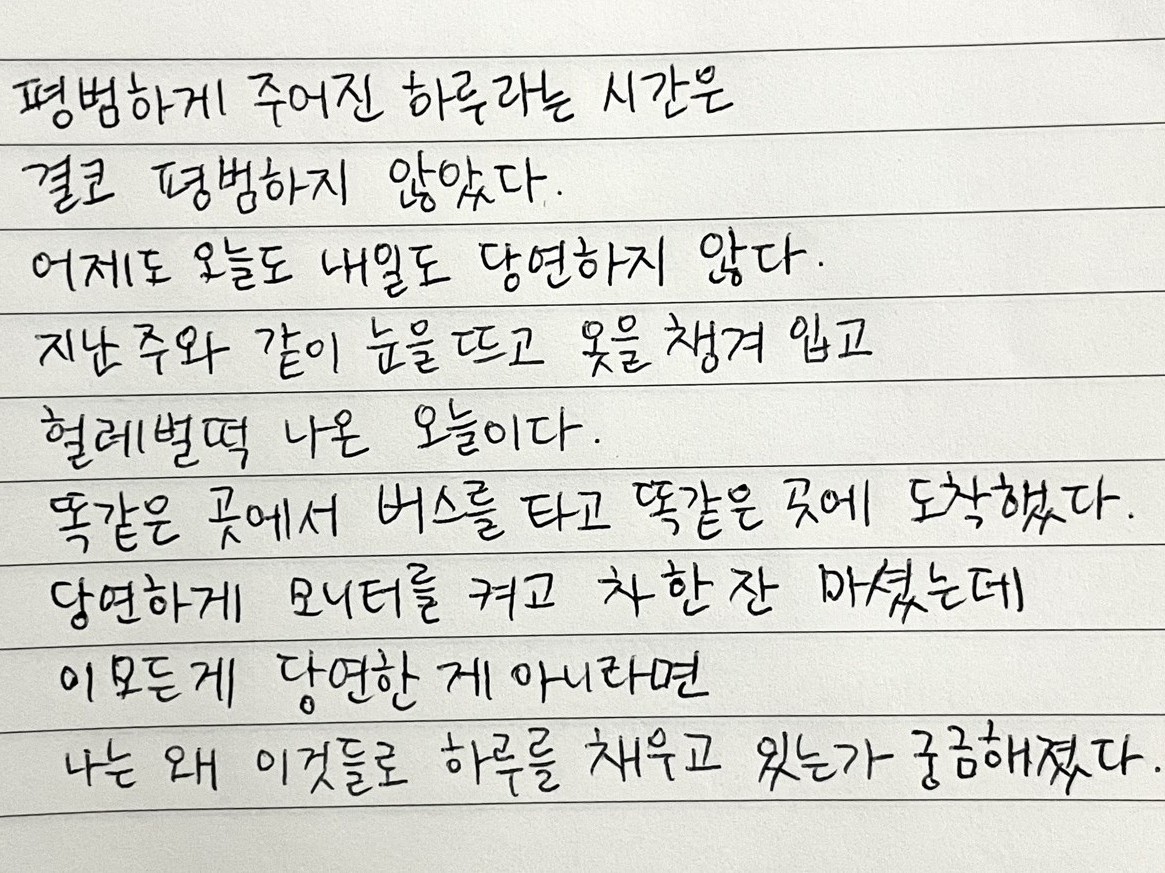 평범하게 주어진 하루라는 시간은
결코 평범하지 않았다.
어제도 오늘도 내일도 당연하지 않다.
지난 주와 같이 눈을 뜨고 옷을 챙겨 입고
헐레벌떡 나온 오늘이다.
똑같은 곳에서 버스를 타고 똑같은 곳에 도착했다.
당연하게 모니터를 켜고 차 한 잔 마셨는데
이 모든 게 당연한 게 아니라면
나는 왜 이것들로 하루를 채우고 있는가 궁금해졌다.